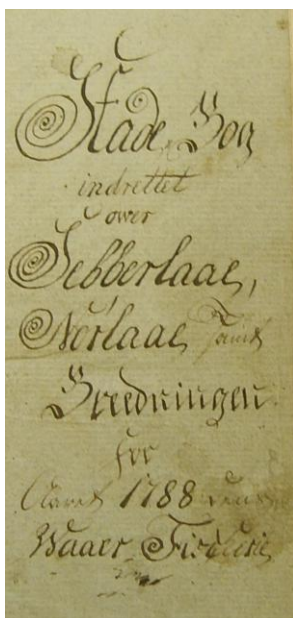 Stade Bog
indrettet
over
Sebberlaae,
Nørlaae samt
Breedningen
for
Aaret 1788
Waaer Fiskerie